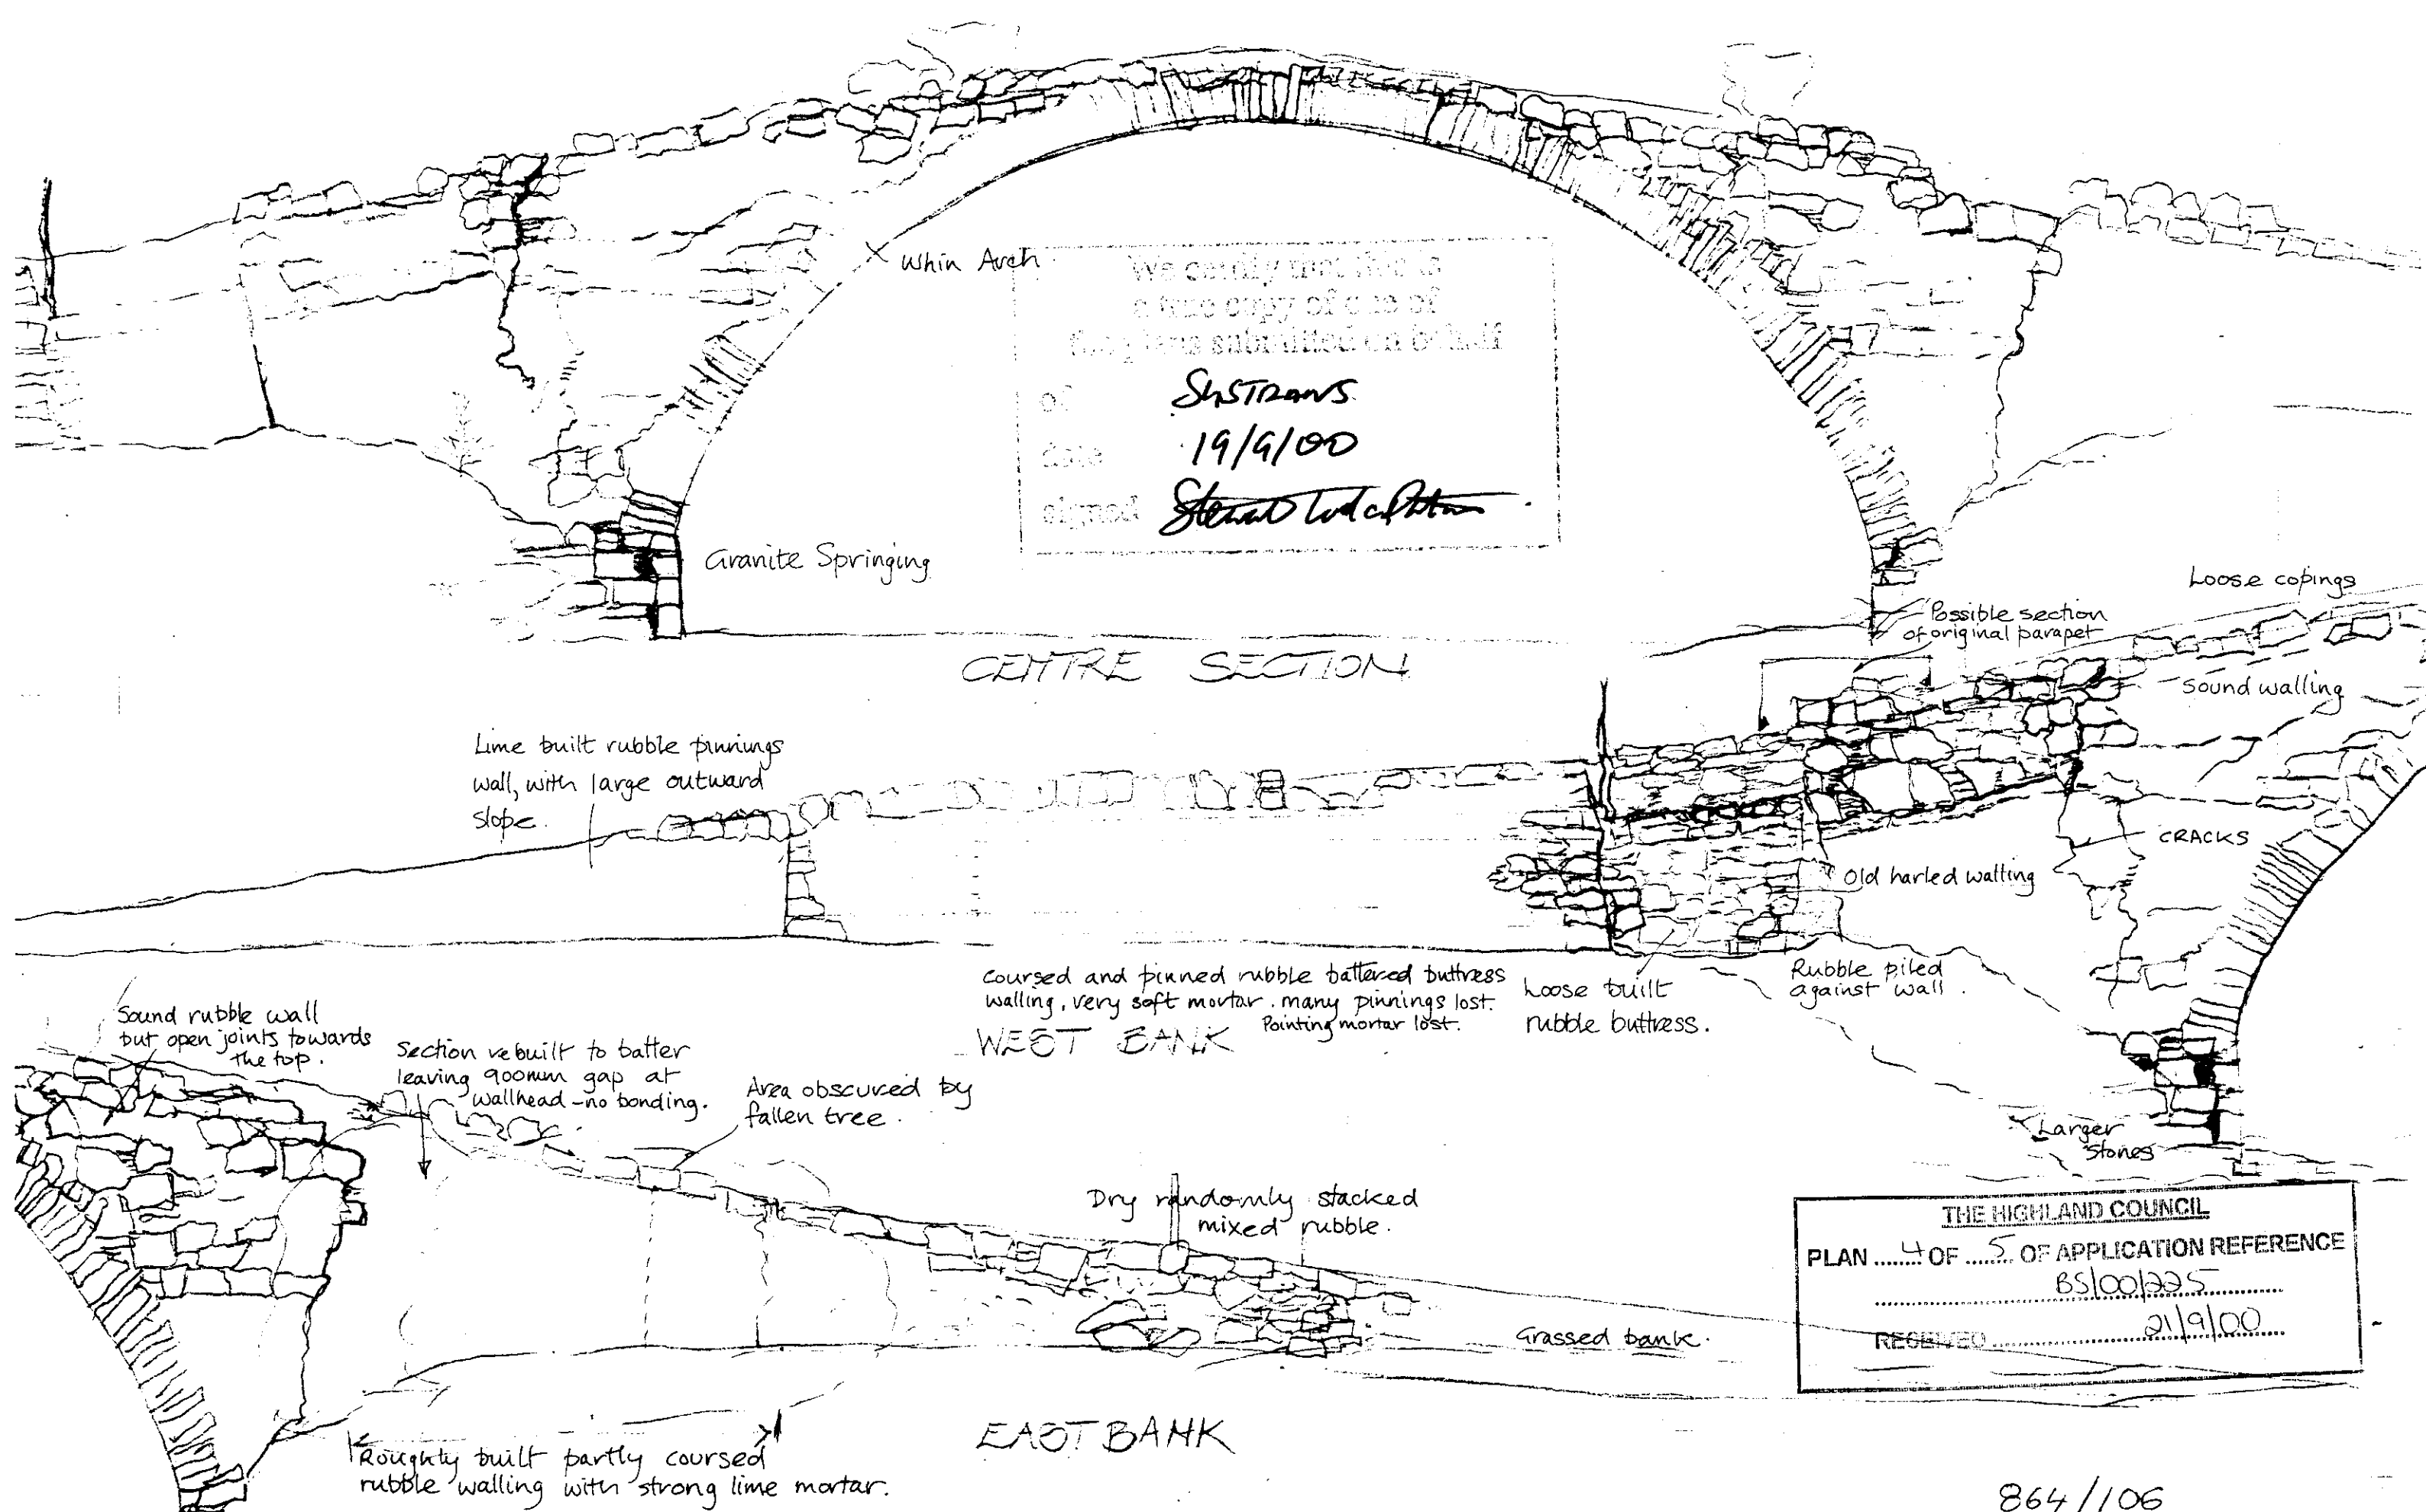 Whin Arch
We certify that this is
a true copy of one of
the plans submitted on behalf
of SUSTRANS
date 19/9/00
signed
Granite Springing
CENTRE SECTION
Loose copings
Possible section
of original parapet
Sound walling
Lime built rubble pinnings
wall, with large outward
slope.
CRACKS
Old harled walling
Coursed and pinned rubble battered buttress
walling, very soft mortar. many pinnings lost.
Pointing mortar lost.
Loose built
rubble buttress.
Rubble piled
against wall.
WEST BANK
Larger
Stones
Sound rubble wall
but open joints towards
the top.
Section rebuilt to batter
leaving 900mm gap at
wallhead - no bonding.
Area obscured by
fallen tree.
Dry randomly stacked
mixed rubble.
Grassed bank.
THE HIGHLAND COUNCIL
PLAN ....4 OF ....5.... OF APPLICATION REFERENCE
BS/00/225
RECEIVED 21/9/00
EAST BANK
Roughly built partly coursed
rubble walling with strong lime mortar.
864/106